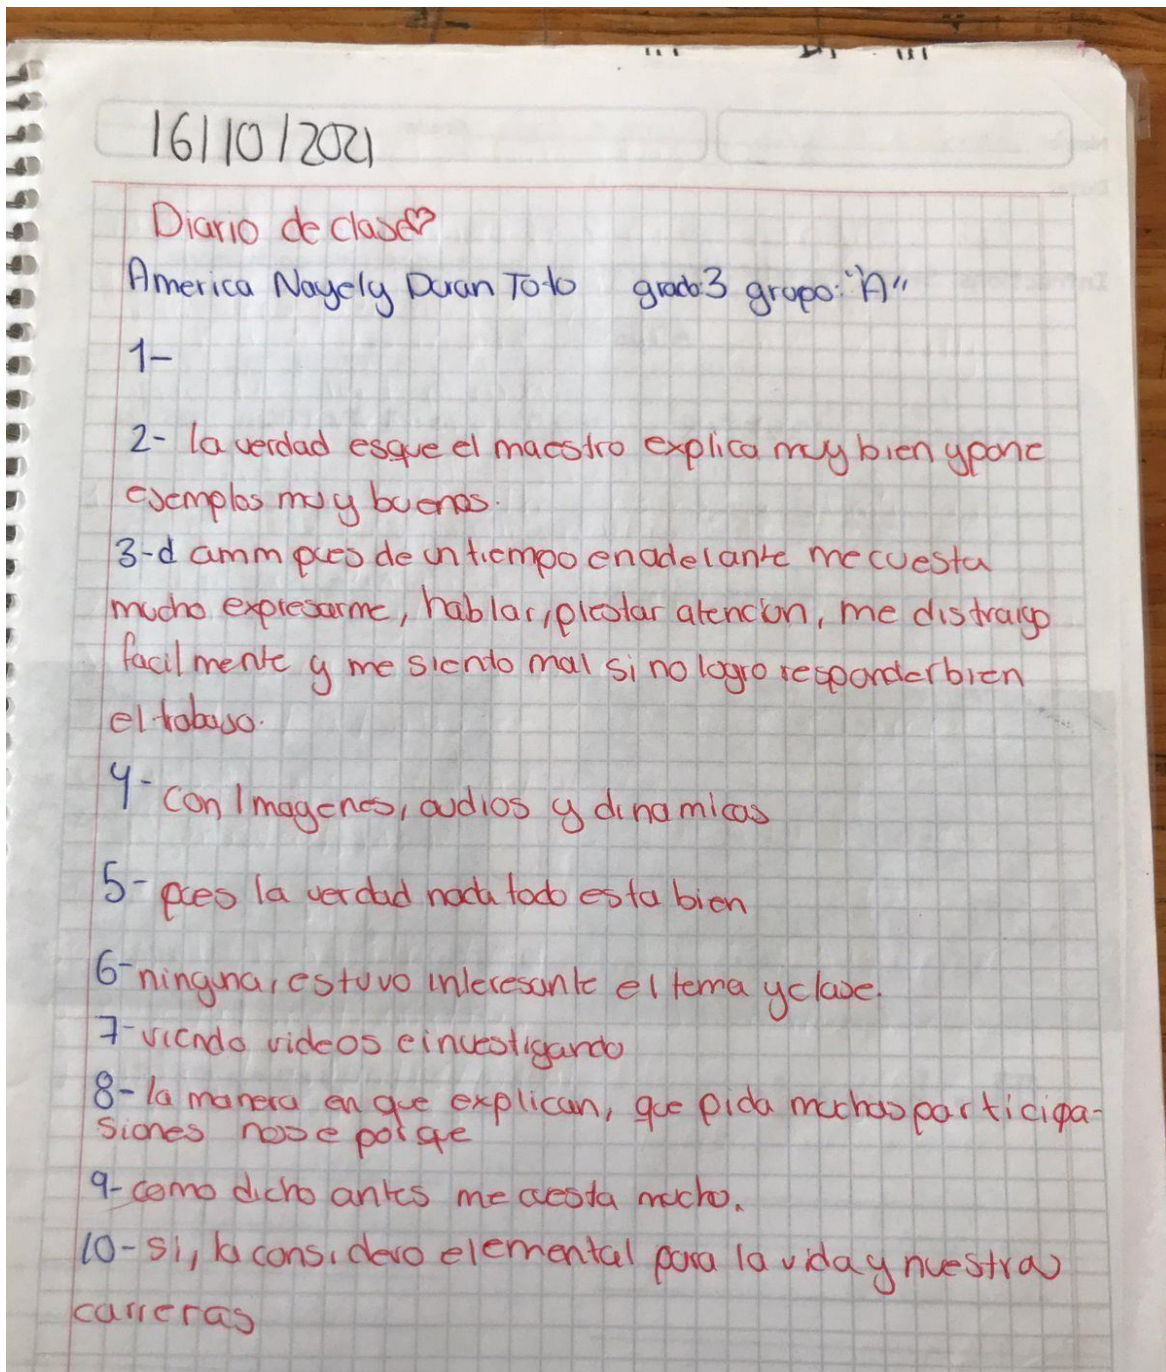 16/10/2021
Diario de clase♡
America Nayely Duran Toto grado:3 grupo: "A"
1-
2- la verdad esque el maestro explica muy bien y pone
ejemplos muy buenos.
3-d amm pues de un tiempo en adelante me cuesta
mucho expresarme, hablar, prestar atencion, me distraigo
facilmente y me siento mal si no logro responder bien
el trabajo.
4- con Imagenes, audios y dinamicas
5- pues la verdad nada todo esta bien
6- ninguna, estuvo interesante el tema y clase.
7- viendo videos e investigando
8- la manera en que explican, que pida muchas participa-
siones nose porque
9- como dicho antes me cuesta mucho.
10- si, la considero elemental para la vida y nuestras
carreras